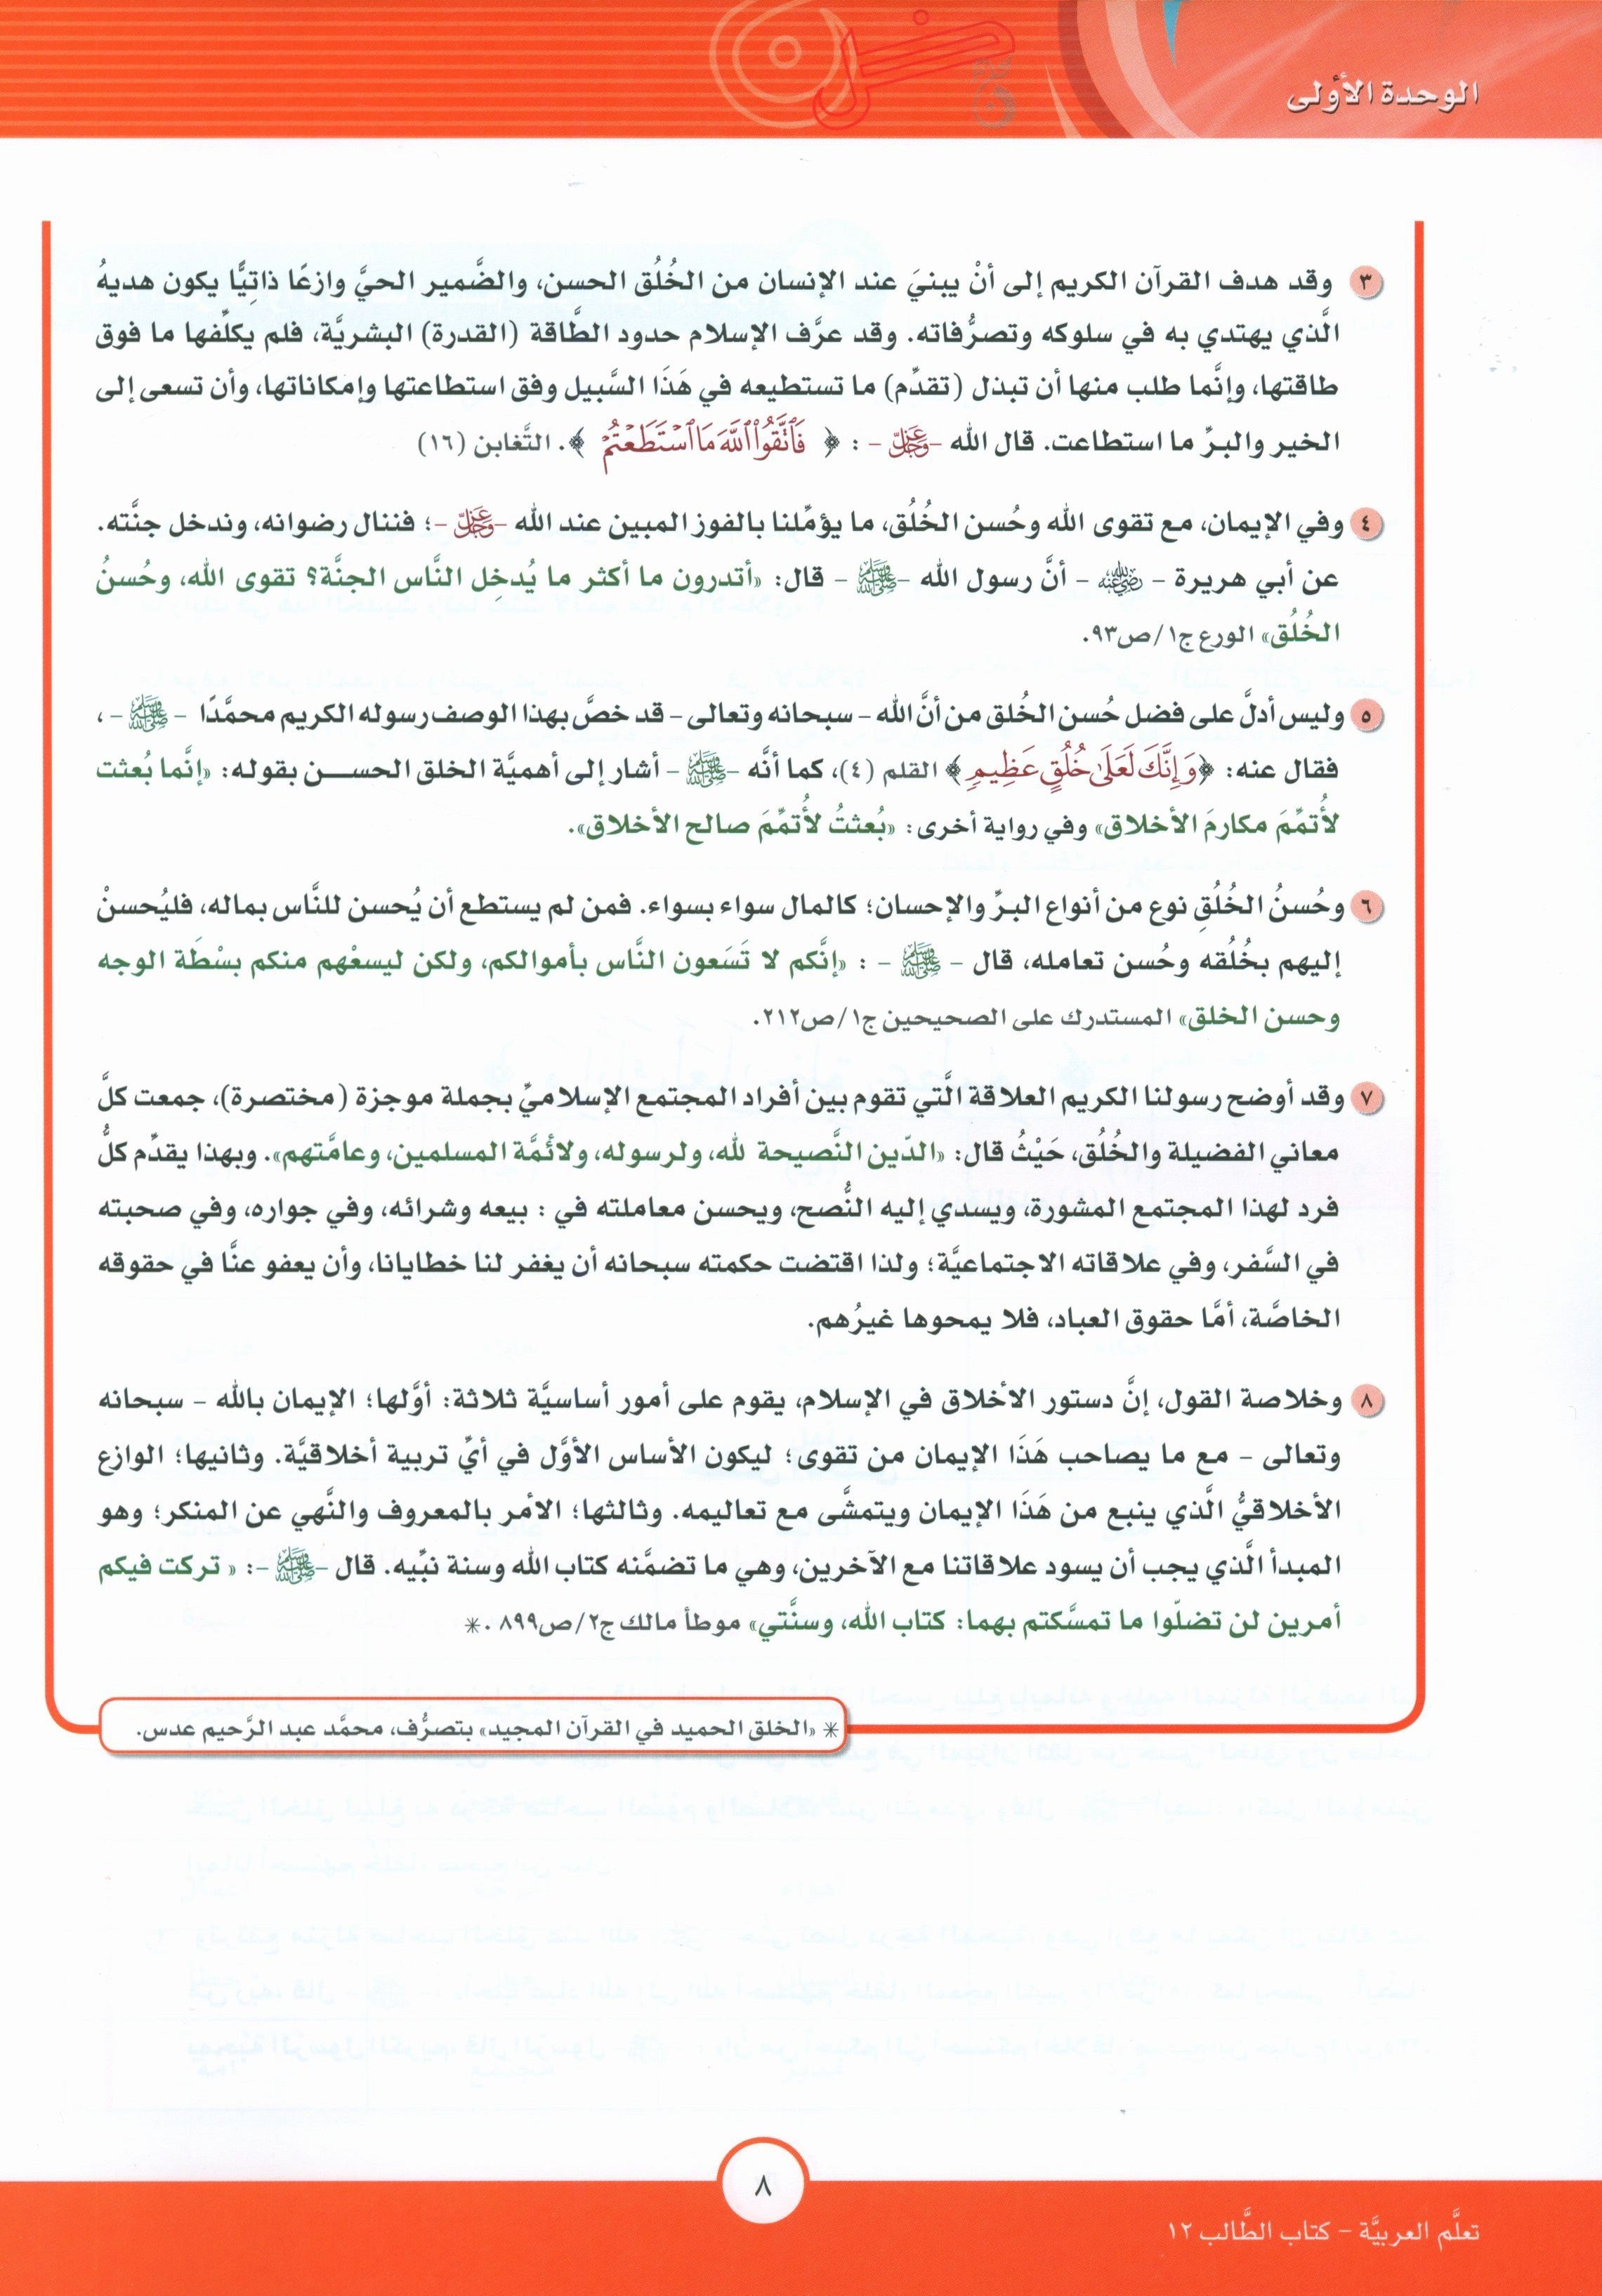 الوحدة الأولى
٣ وقد هدف القرآن الكريم إلى أنْ يبنيَ عند الإنسان من الخُلُق الحسن، والضَّمير الحيَّ وازعًا ذاتِيًّا يكون هديهُ
الَّذي يهتدي به في سلوكه وتصرُّفاته. وقد عرَّف الإسلام حدود الطَّاقة (القدرة) البشريَّة، فلم يكلِّفها ما فوق
طاقتها، وإنَّما طلب منها أن تبذل (تقدِّم) ما تستطيعه في هَذَا السَّبيل وفق استطاعتها وإمكاناتها، وأن تسعى إلى
الخير والبرِّ ما استطاعت. قال الله –عَزَّ وَجَلَّ– : ﴿ فَاتَّقُوا اللَّهَ مَا اسْتَطَعْتُمْ ﴾. التَّغابن (١٦)
٤ وفي الإيمان، مع تقوى الله وحُسن الخُلُق، ما يؤمِّلنا بالفوز المبين عند الله –عَزَّ وَجَلَّ–؛ فننال رضوانه، وندخل جنَّته.
عن أبي هريرة – رضي الله عنه – أنَّ رسول الله –ﷺ– قال: «أتدرون ما أكثر ما يُدخِل النَّاس الجنَّة؟ تقوى الله، وحُسنُ
الخُلُق» الورع ج١/ص٩٣.
٥ وليس أدلَّ على فضل حُسن الخُلق من أنَّ الله – سبحانه وتعالى – قد خصَّ بهذا الوصف رسوله الكريم محمَّدًا –ﷺ– ،
فقال عنه: ﴿وَإِنَّكَ لَعَلَىٰ خُلُقٍ عَظِيمٍ﴾ القلم (٤)، كما أنَّه –ﷺ– أشار إلى أهميَّة الخلق الحســـن بقوله: «إنَّما بُعثت
لأُتمِّمَ مكارمَ الأخلاق» وفي رواية أخرى: «بُعثتُ لأُتمِّمَ صالح الأخلاق».
٦ وحُسنُ الخُلُقِ نوع من أنواع البرِّ والإحسان؛ كالمال سواء بسواء. فمن لم يستطع أن يُحسن للنَّاس بماله، فليُحسنْ
إليهم بخُلُقه وحُسن تعامله، قال –ﷺ– : «إنَّكم لا تَسَعون النَّاس بأموالكم، ولكن ليسعْهم منكم بسْطَة الوجه
وحسن الخلق» المستدرك على الصحيحين ج١/ص٢١٢.
٧ وقد أوضح رسولنا الكريم العلاقة الَّتي تقوم بين أفراد المجتمع الإسلاميِّ بجملة موجزة (مختصرة)، جمعت كلَّ
معاني الفضيلة والخُلُق، حَيْثُ قال: «الدّين النَّصيحة لله، ولرسوله، ولأئمَّة المسلمين، وعامَّتهم». وبهذا يقدِّم كلُّ
فرد لهذا المجتمع المشورة، ويسدي إليه النُّصح، ويحسن معاملته في : بيعه وشرائه، وفي جواره، وفي صحبته
في السَّفر، وفي علاقاته الاجتماعيَّة؛ ولذا اقتضت حكمته سبحانه أن يغفر لنا خطايانا، وأن يعفو عنَّا في حقوقه
الخاصَّة، أمَّا حقوق العباد، فلا يمحوها غيرُهم.
٨ وخلاصة القول، إنَّ دستور الأخلاق في الإسلام، يقوم على أمور أساسيَّة ثلاثة: أوَّلها؛ الإيمان بالله – سبحانه
وتعالى – مع ما يصاحب هَذَا الإيمان من تقوى؛ ليكون الأساس الأوَّل في أيِّ تربية أخلاقيَّة. وثانيها؛ الوازع
الأخلاقيُّ الَّذي ينبع من هَذَا الإيمان ويتمشَّى مع تعاليمه. وثالثها؛ الأمر بالمعروف والنَّهي عن المنكر؛ وهو
المبدأ الَّذي يجب أن يسود علاقاتنا مع الآخرين، وهي ما تضمَّنه كتاب الله وسنة نبِّيه. قال –ﷺ–: « تركت فيكم
أمرين لن تضلّوا ما تمسَّكتم بهما: كتاب الله، وسنَّتي» موطأ مالك ج٢/ص٨٩٩ .*
* «الخلق الحميد في القرآن المجيد» بتصرُّف، محمَّد عبد الرَّحيم عدس.
٨
تعلَّم العربيَّة – كتاب الطَّالب ١٢